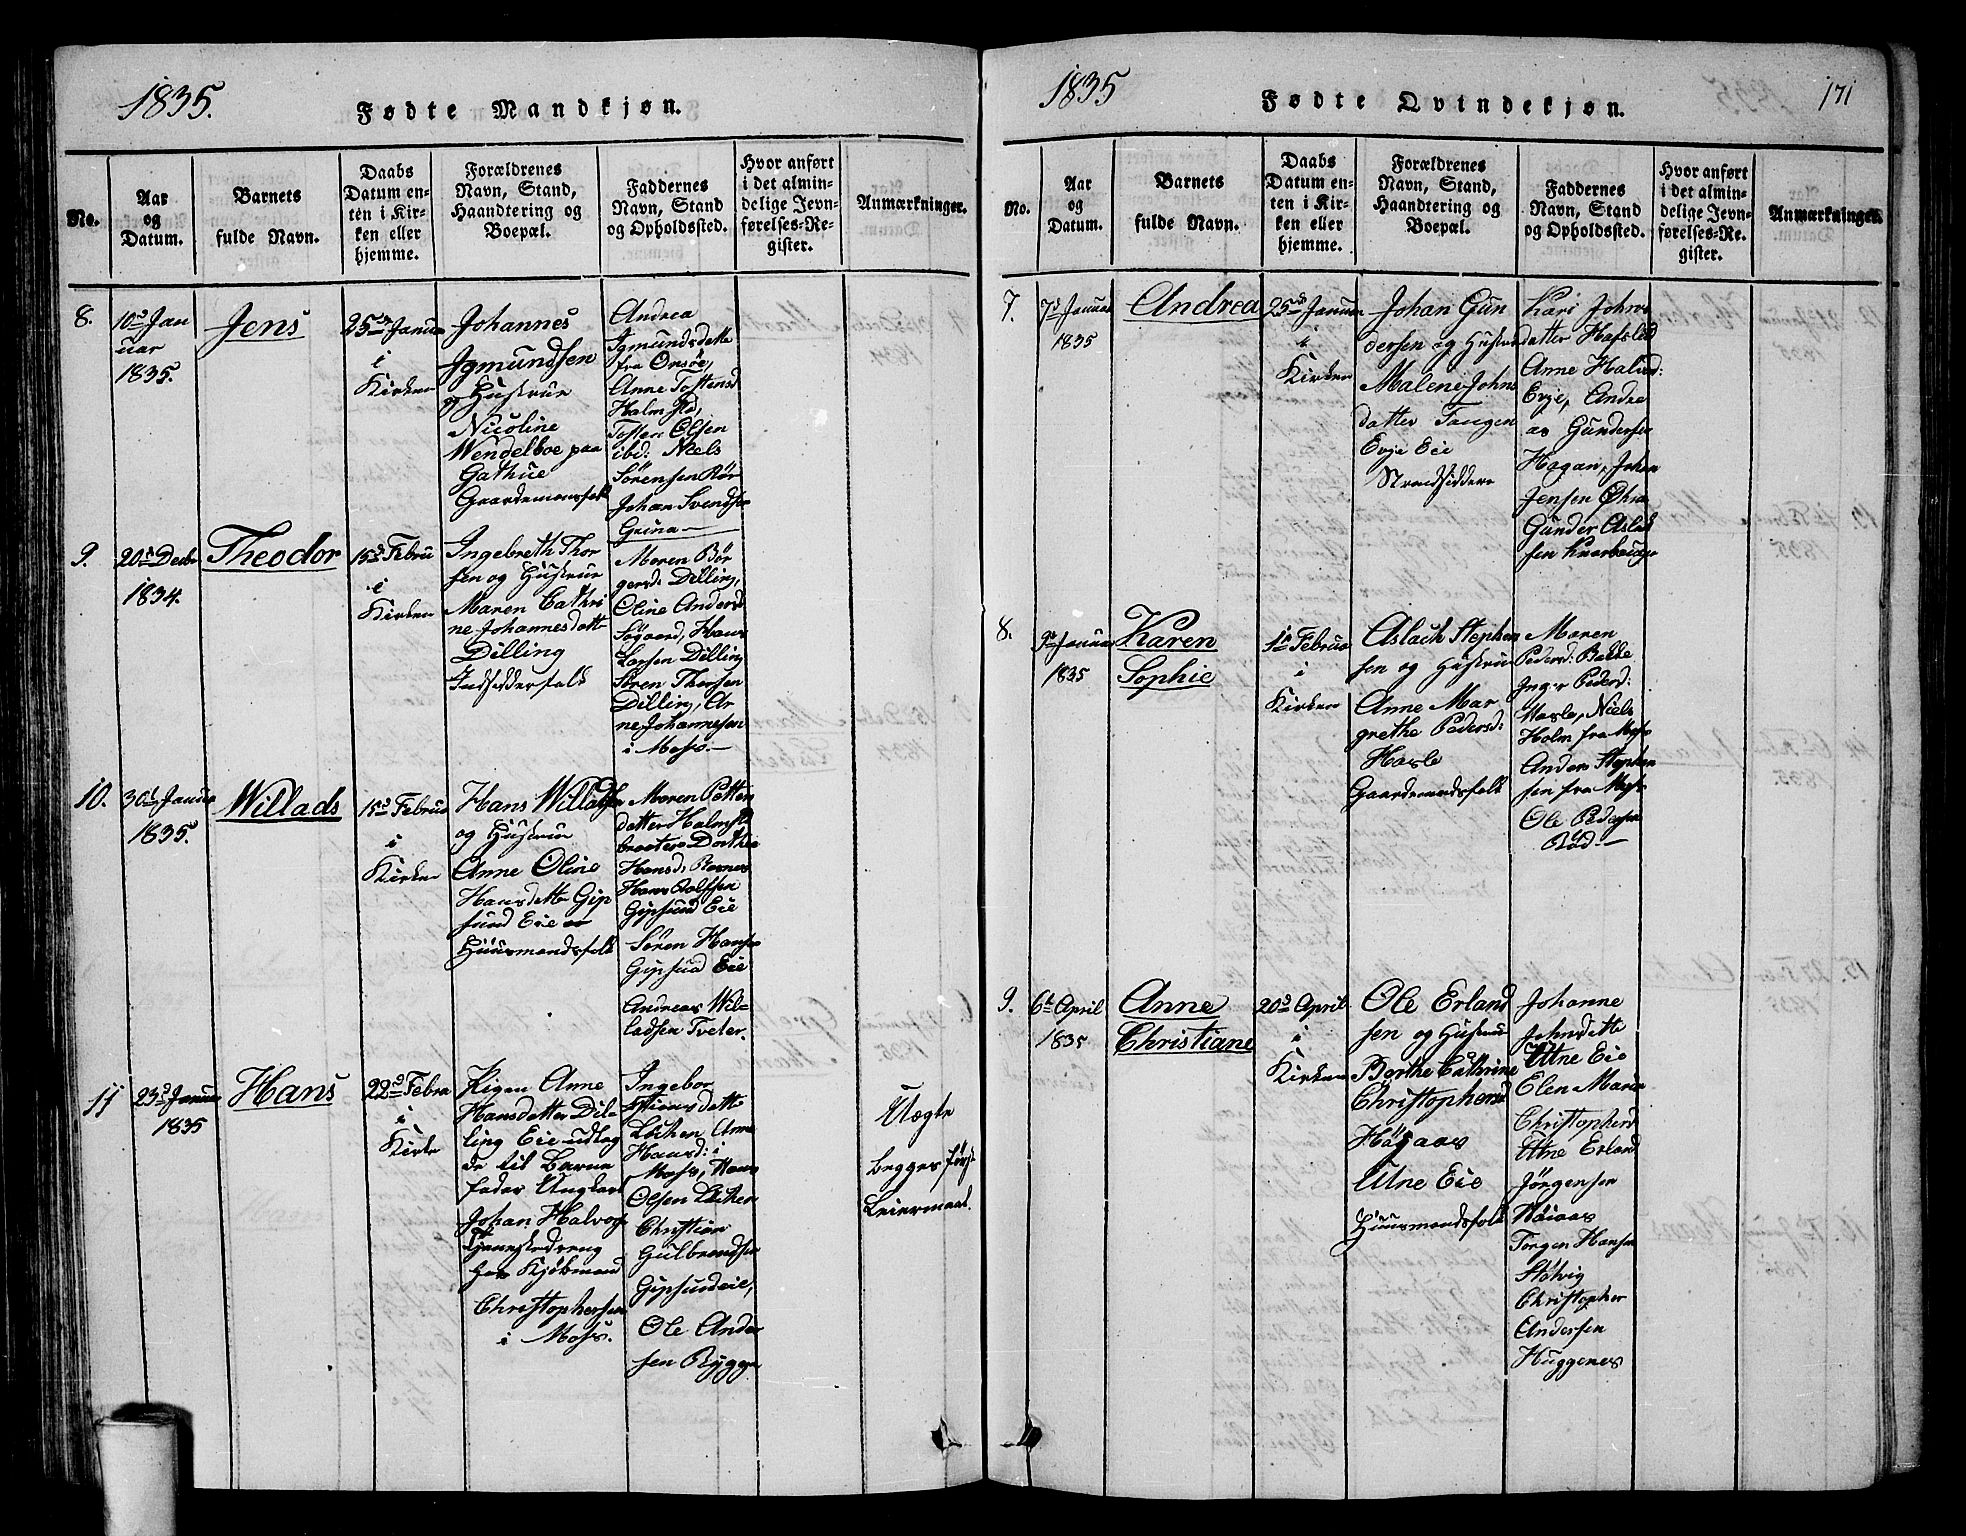 1835.
Fødte Mandkjøn.
No.
Aar
og
Datum.
Barnets
fulde Navn.
Daabs
Datum en-
ten i Kir-
ken eller
hjemme.
Forældrenes
Navn, Stand,
Haandtering og
Boepæl.
Faddernes
Navn, Stand
og Opholdssted.
Hvor anført
i det almin-
delige Jevn-
førelses-Re-
gister.
Anmærkninger.
8.
10d Jan
uar
1835.
Jens
25d Januar
i
Kirken
Johannes
Igmundsen
og Hustrue
Nicoline
Wendelboe paa
Gathue
Gaardemandsfolk
Andrea
Igmundsdatte
fra Onsøe,
Anne Tostensd
Halmstad,
Tosten Olsen
ibd: Neels
Sörensen Rör
Johan Svendsen
Grima
9.
20d Decbr
1834.
Theodor
15d Febru
i
Kirken
Ingebreth Thor
sen og Hustrue
Maren Cathri
ne Johannesdatt
Dilling
Indsidderfolk
Maren Bör
gersd: Dilling,
Oline Andersd
Søgaard, Hans
Larsen Dilling
Sören Thorsen
Dilling, Ar
ne Johannesen
i Moss.
10.
30d Januar
1835.
Willads
15d Februa
i
Kirken
Hans Willadsen
og Hustrue
Anne Oline
Hansdatte Gip
sund Eie
Huusmandsfolk
Maren Petters
datter Halmst
braaten Dorthe
Hansd:
Hans Rolfsen
Gipsund Eie
Sören Hanse
Gipsund Eie
Andreas Wil-
ladsen Tveter.
11
23d Janua
1835
Hans
22d Febra
i
Kirke
Pigen Anne
Hansdatter Dil
ling Eie udlag
de til Barne
fader Ungkarl
Johan Halvog
Tjenestedreng
hos Kjöbmand
Christophersen
i Moss.
Ingebor
Stiansdatte
Löken, Anne
Hansd: i
Moss, Hans
Olsen Löken
Christian
Gulbrandsen
Gipsundeie,
Ole Ander
sen Rygge
Uægte
begges förste
Leiermaal.
1835
Fødte Qvindekjøn.
171
No.
Aar
og
Datum.
Barnets
fulde Navn.
Daabs
Datum en-
ten i Kir-
ken eller
hjemme.
Forældrenes
Navn, Stand,
Haandtering og
Boepæl.
Faddernes
Navn, Stand
og Opholdssted.
Hvor anført
i det almin-
delige Jevn-
førelses-Re-
gister.
Anmærkninger.
7.
7d Januar
1835
Andrea
25d Januar
i
Kirken
Johan Gun
dersen og Hustru
Malene Johns
datter Tangen
Evje Eie
Strandsiddere
Kari Johns
datter Hafslöd
Anne Halvd:
Evje, Andre
as Gundersen
Hagan, Johan
Jensen
Gunder Aslak
sen
8.
9d Januar
1835
Karen
Sophie
1d Februa
i
Kirken
Aslach Stephen
sen og Hustrue
Anne Mar
grethe Pedersd:
Hasle
Gaardemandsfolk
Maren
Pedersd: Bakke
Inger Pedersd:
Hasle, Niels
Holm fra Moss
Anders Stephen
sen fra Moss
Ole Pedersen
Röd
9.
6d April
1835
Anne
Christiane
20d April
i
Kirken
Ole Erland
sen og Hustrue
Berthe Cathrine
Christophersd
Högaas
Utne Eie
Huusmandsfolk
Johanne
Johnsdatte
Utne Eie
Elen Maria
Christophersd
Utne Erland
Jörgensen
Höiaas
Torgen Hansen
Stövig
Christopher
Andersen
Huggenes